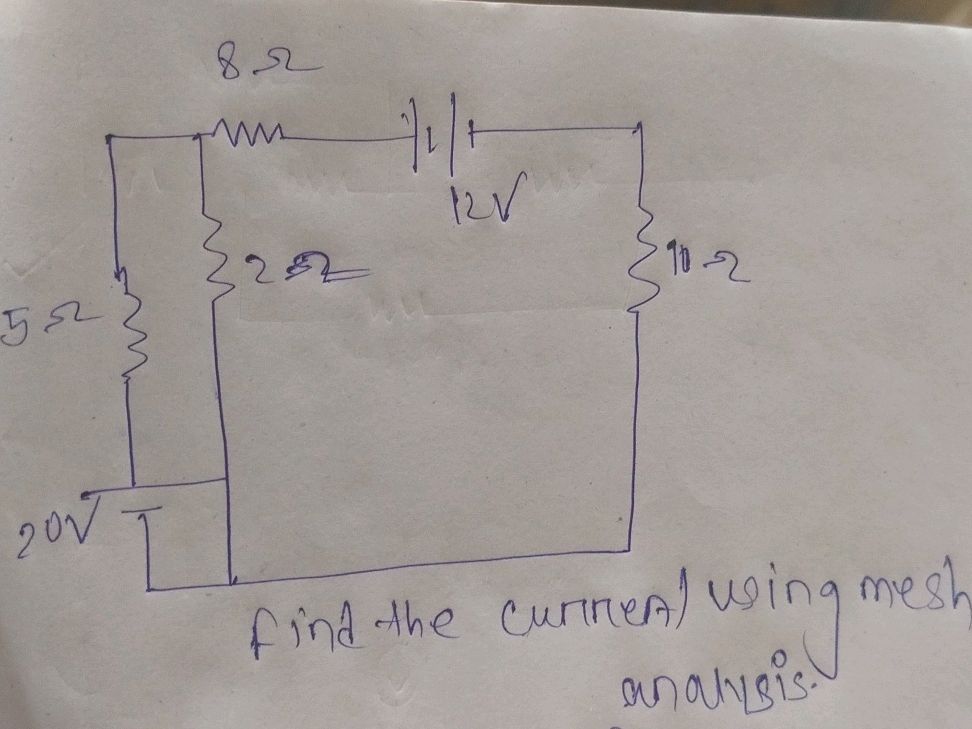 8Ω
12V
2Ω
10Ω
5Ω
20V
find the current using mesh
analysis.